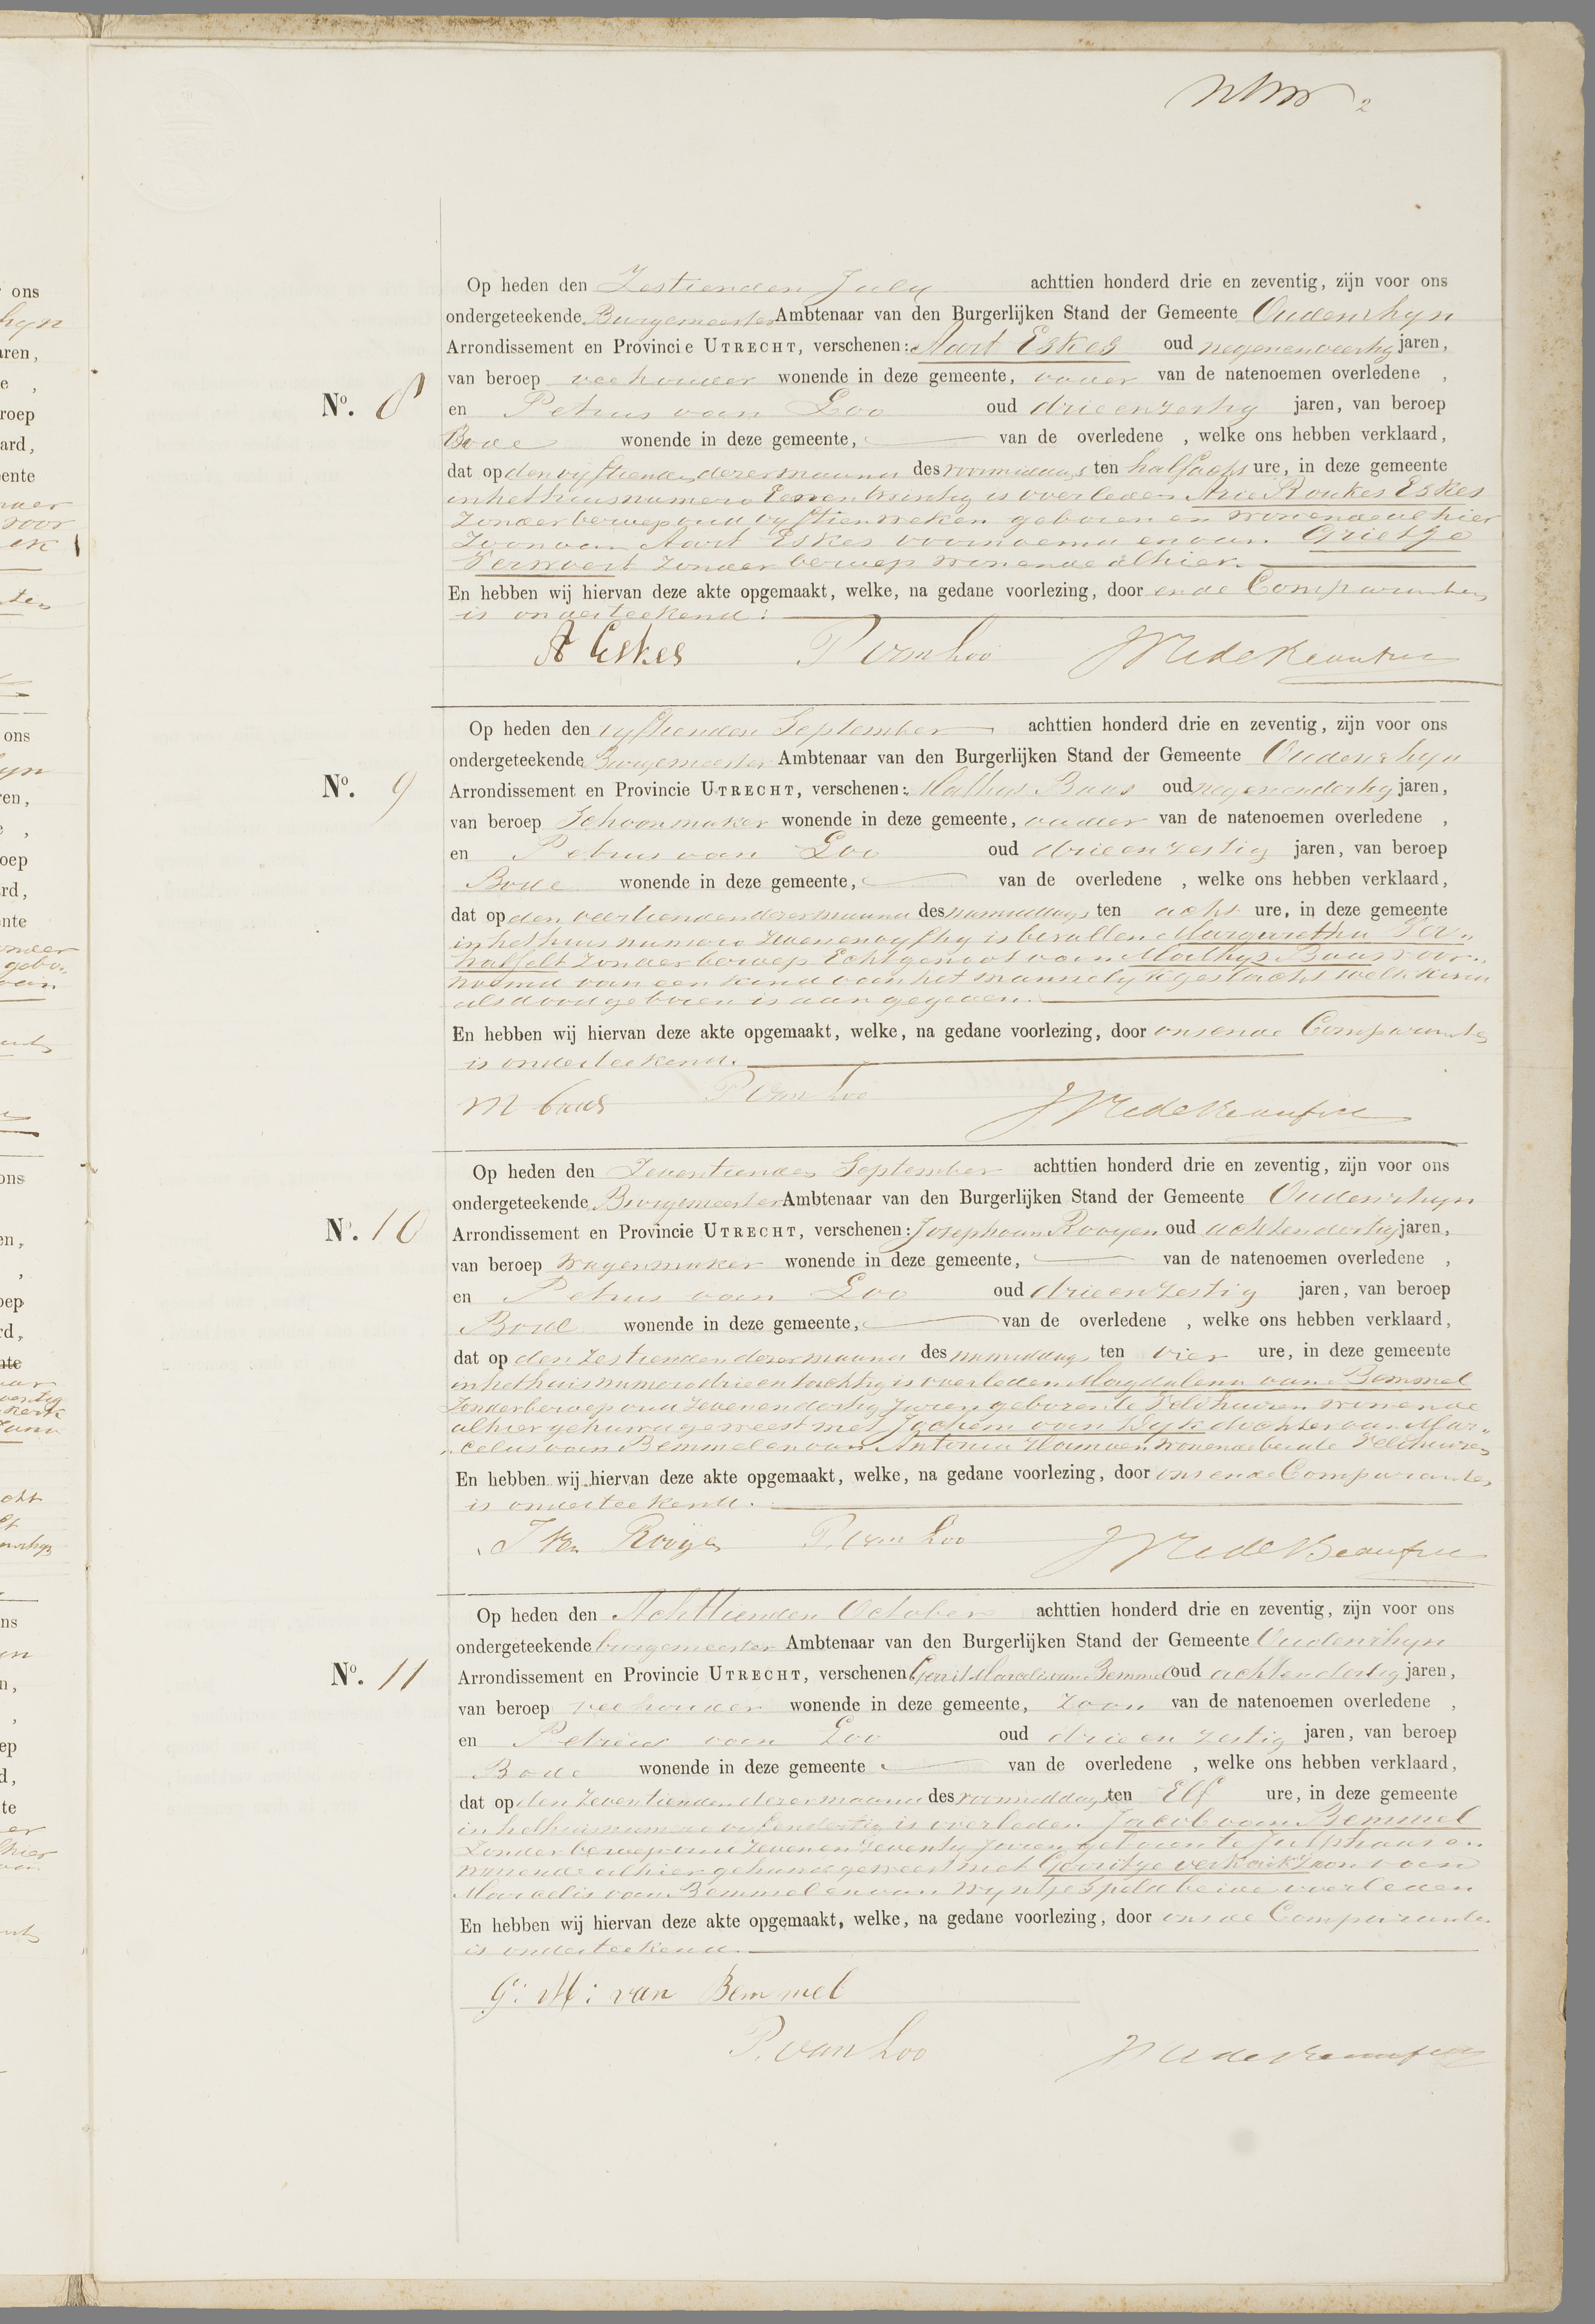 2
Op heden den Zestienden July achttien honderd drie en zeventig, zijn voor ons
ondergeteekende Burgemeester Ambtenaar van den Burgerlijken Stand der Gemeente Oudenrhyn
Arrondissement en Provincie UTRECHT, verschenen: Aart Eskes oud negenenveertig jaren,
van beroep veehouder wonende in deze gemeente, vader van de natenoemen overledene ,
No. 8
en Petrus van Loo oud drieenzestig jaren, van beroep
Bode wonende in deze gemeente, van de overledene , welke ons hebben verklaard,
dat op den vyftienden dezer maand des voormiddags ten half acht ure, in deze gemeente
in het huis numero Eenentwintig is overleden Arie Roukes Eskes
Zonder beroep oud vyftien weken geboren en wonende alhier
Zoon van Aart Eskes voornoemd en van Grietje
Verwoert Zonder beroep wonende alhier.
En hebben wij hiervan deze akte opgemaakt, welke, na gedane voorlezing, door en de Comparanten
is onderteekend.
A Eskes P van Loo
Op heden den vyftienden September achttien honderd drie en zeventig, zijn voor ons
ondergeteekende Burgemeester Ambtenaar van den Burgerlijken Stand der Gemeente Oudenrhyn
No. 9
Arrondissement en Provincie UTRECHT, verschenen: Mathys Baas oud negenendertig jaren,
van beroep Schoenmaker wonende in deze gemeente, vader van de natenoemen overledene ,
en Petrus van Loo oud drieenzestig jaren, van beroep
Bode wonende in deze gemeente, van de overledene , welke ons hebben verklaard,
dat op den veertienden dezer maand des namiddags ten acht ure, in deze gemeente
in het huis numero zevenenvyftig is bevallen Margaretha Ver„
halfelt Zonder beroep Echtgenoot van Mathys Baas voor„
noemd van een kind van het mannelyk geslacht welk kind
als dood geboren is aangegeven.
En hebben wij hiervan deze akte opgemaakt, welke, na gedane voorlezing, door ons en de Comparanten
is onderteekend.
M Baas P van Loo
Op heden den Zeventienden September achttien honderd drie en zeventig, zijn voor ons
ondergeteekende Burgemeester Ambtenaar van den Burgerlijken Stand der Gemeente Oudenrhyn
No. 10
Arrondissement en Provincie UTRECHT, verschenen: Joseph van Rooyen oud achtendertig jaren,
van beroep Wagenmaker wonende in deze gemeente, van de natenoemen overledene ,
en Petrus van Loo oud drieenzestig jaren, van beroep
Bode wonende in deze gemeente, van de overledene , welke ons hebben verklaard,
dat op den Zestienden dezer maand des namiddags ten vier ure, in deze gemeente
in het huis numero drieentachtig is overleden Magdalena van Bemmel
Zonder beroep oud Zevenendertig Jaren geboren te Veldhuizen wonende
alhier gehuwd geweest met Jochem van Dyk dochter van Mar„
„celus van Bemmel en van Antonia Hamoen wonende beide Veldhuizen
En hebben wij hiervan deze akte opgemaakt, welke, na gedane voorlezing, door ons en de Comparanten
is onderteekend.
J Van Rooijen P. van Loo
Op heden den Achttienden October achttien honderd drie en zeventig, zijn voor ons
ondergeteekende burgemeester Ambtenaar van den Burgerlijken Stand der Gemeente Oudenrhyn
No. 11
Arrondissement en Provincie UTRECHT, verschenen Gerrit Marcelis van Bemmel oud achtendertig jaren,
van beroep veehouder wonende in deze gemeente, Zoon van de natenoemen overledene ,
en Petrus van Loo oud drie en zestig jaren, van beroep
Bode wonende in deze gemeente van de overledene , welke ons hebben verklaard,
dat op den Zeventienden dezer maand des voormiddags ten Elf ure, in deze gemeente
in het huis numero vyfendertig is overleden Jacob van Bemmel
Zonder beroep oud Zevenenzeventig Jaren geboren te Jutphaas en
wonende alhier gehuwd geweest met Gerritje verkerk Zoon van
Marcelis van Bemmel en van Wyntje Spelt beide overleden
En hebben wij hiervan deze akte opgemaakt, welke, na gedane voorlezing, door ons de Comparanten
is onderteekend.
G: M: van Bemmel
P. van Loo